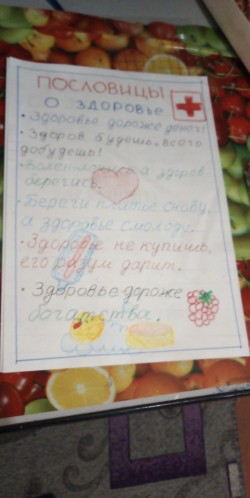 ПОСЛОВИЦЫ
О ЗДОРОВЬЕ
• Здоровье дороже денег!
• Здоров будешь, всего
добудешь!
а здоров
берегись.
• Береги платье снову,
а здоровье смолоду.
• Здоровье не купишь,
его разум дарит.
• Здоровье дороже
богатства.